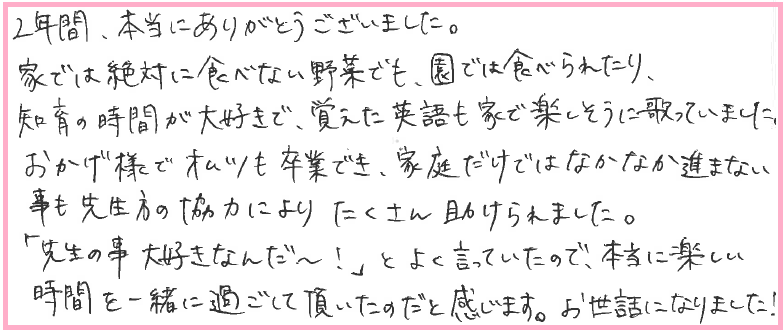 2年間、本当にありがとうございました。
家では絶対に食べない野菜でも、園では食べられたり、
知育の時間が大好きで、覚えた英語も家で楽しそうに歌っていました。
おかげ様でオムツも卒業でき、家庭だけではなかなか進まない
事も先生方の協力によりたくさん助けられました。
「先生の事大好きなんだ〜!」とよく言っていたので、本当に楽しい
時間を一緒に過ごして頂いたのだと感じます。お世話になりました!